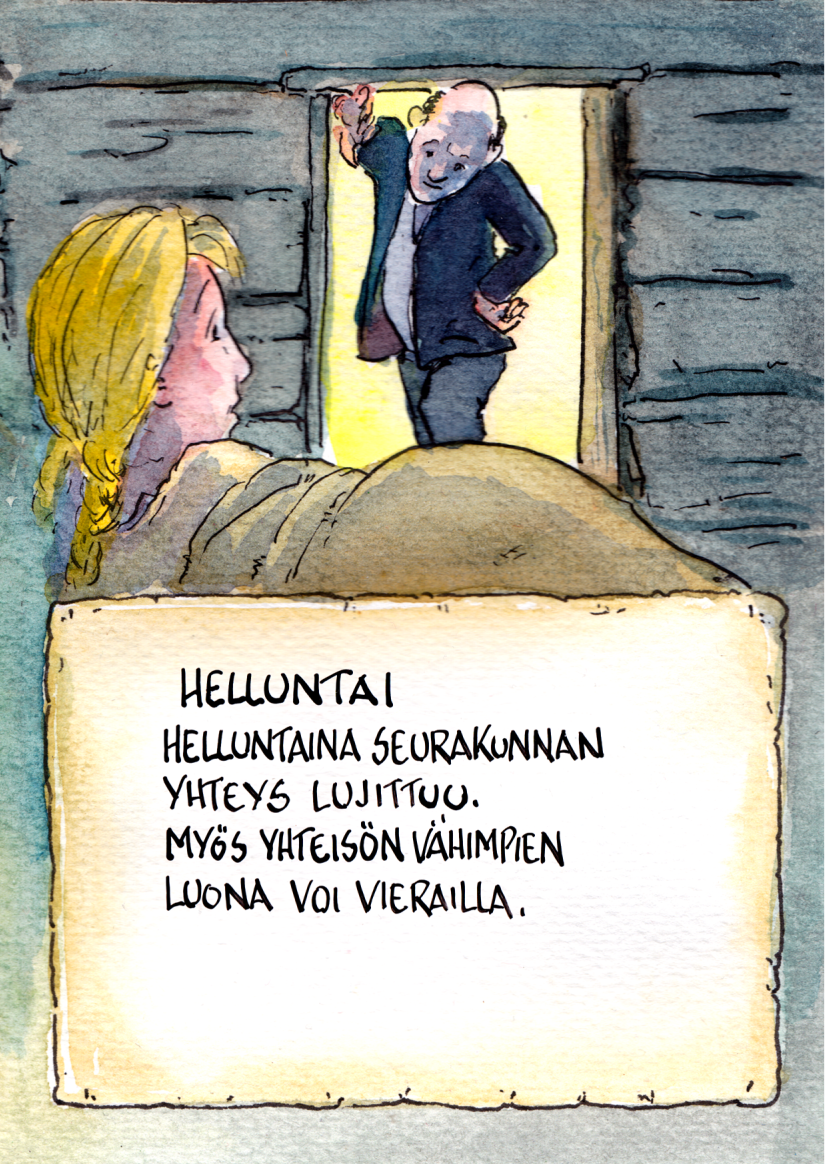 HELLUNTAI
HELLUNTAINA SEURAKUNNAN
YHTEYS LUJITTUU.
MYÖS YHTEISÖN VÄHIMPIEN
LUONA VOI VIERAILLA.